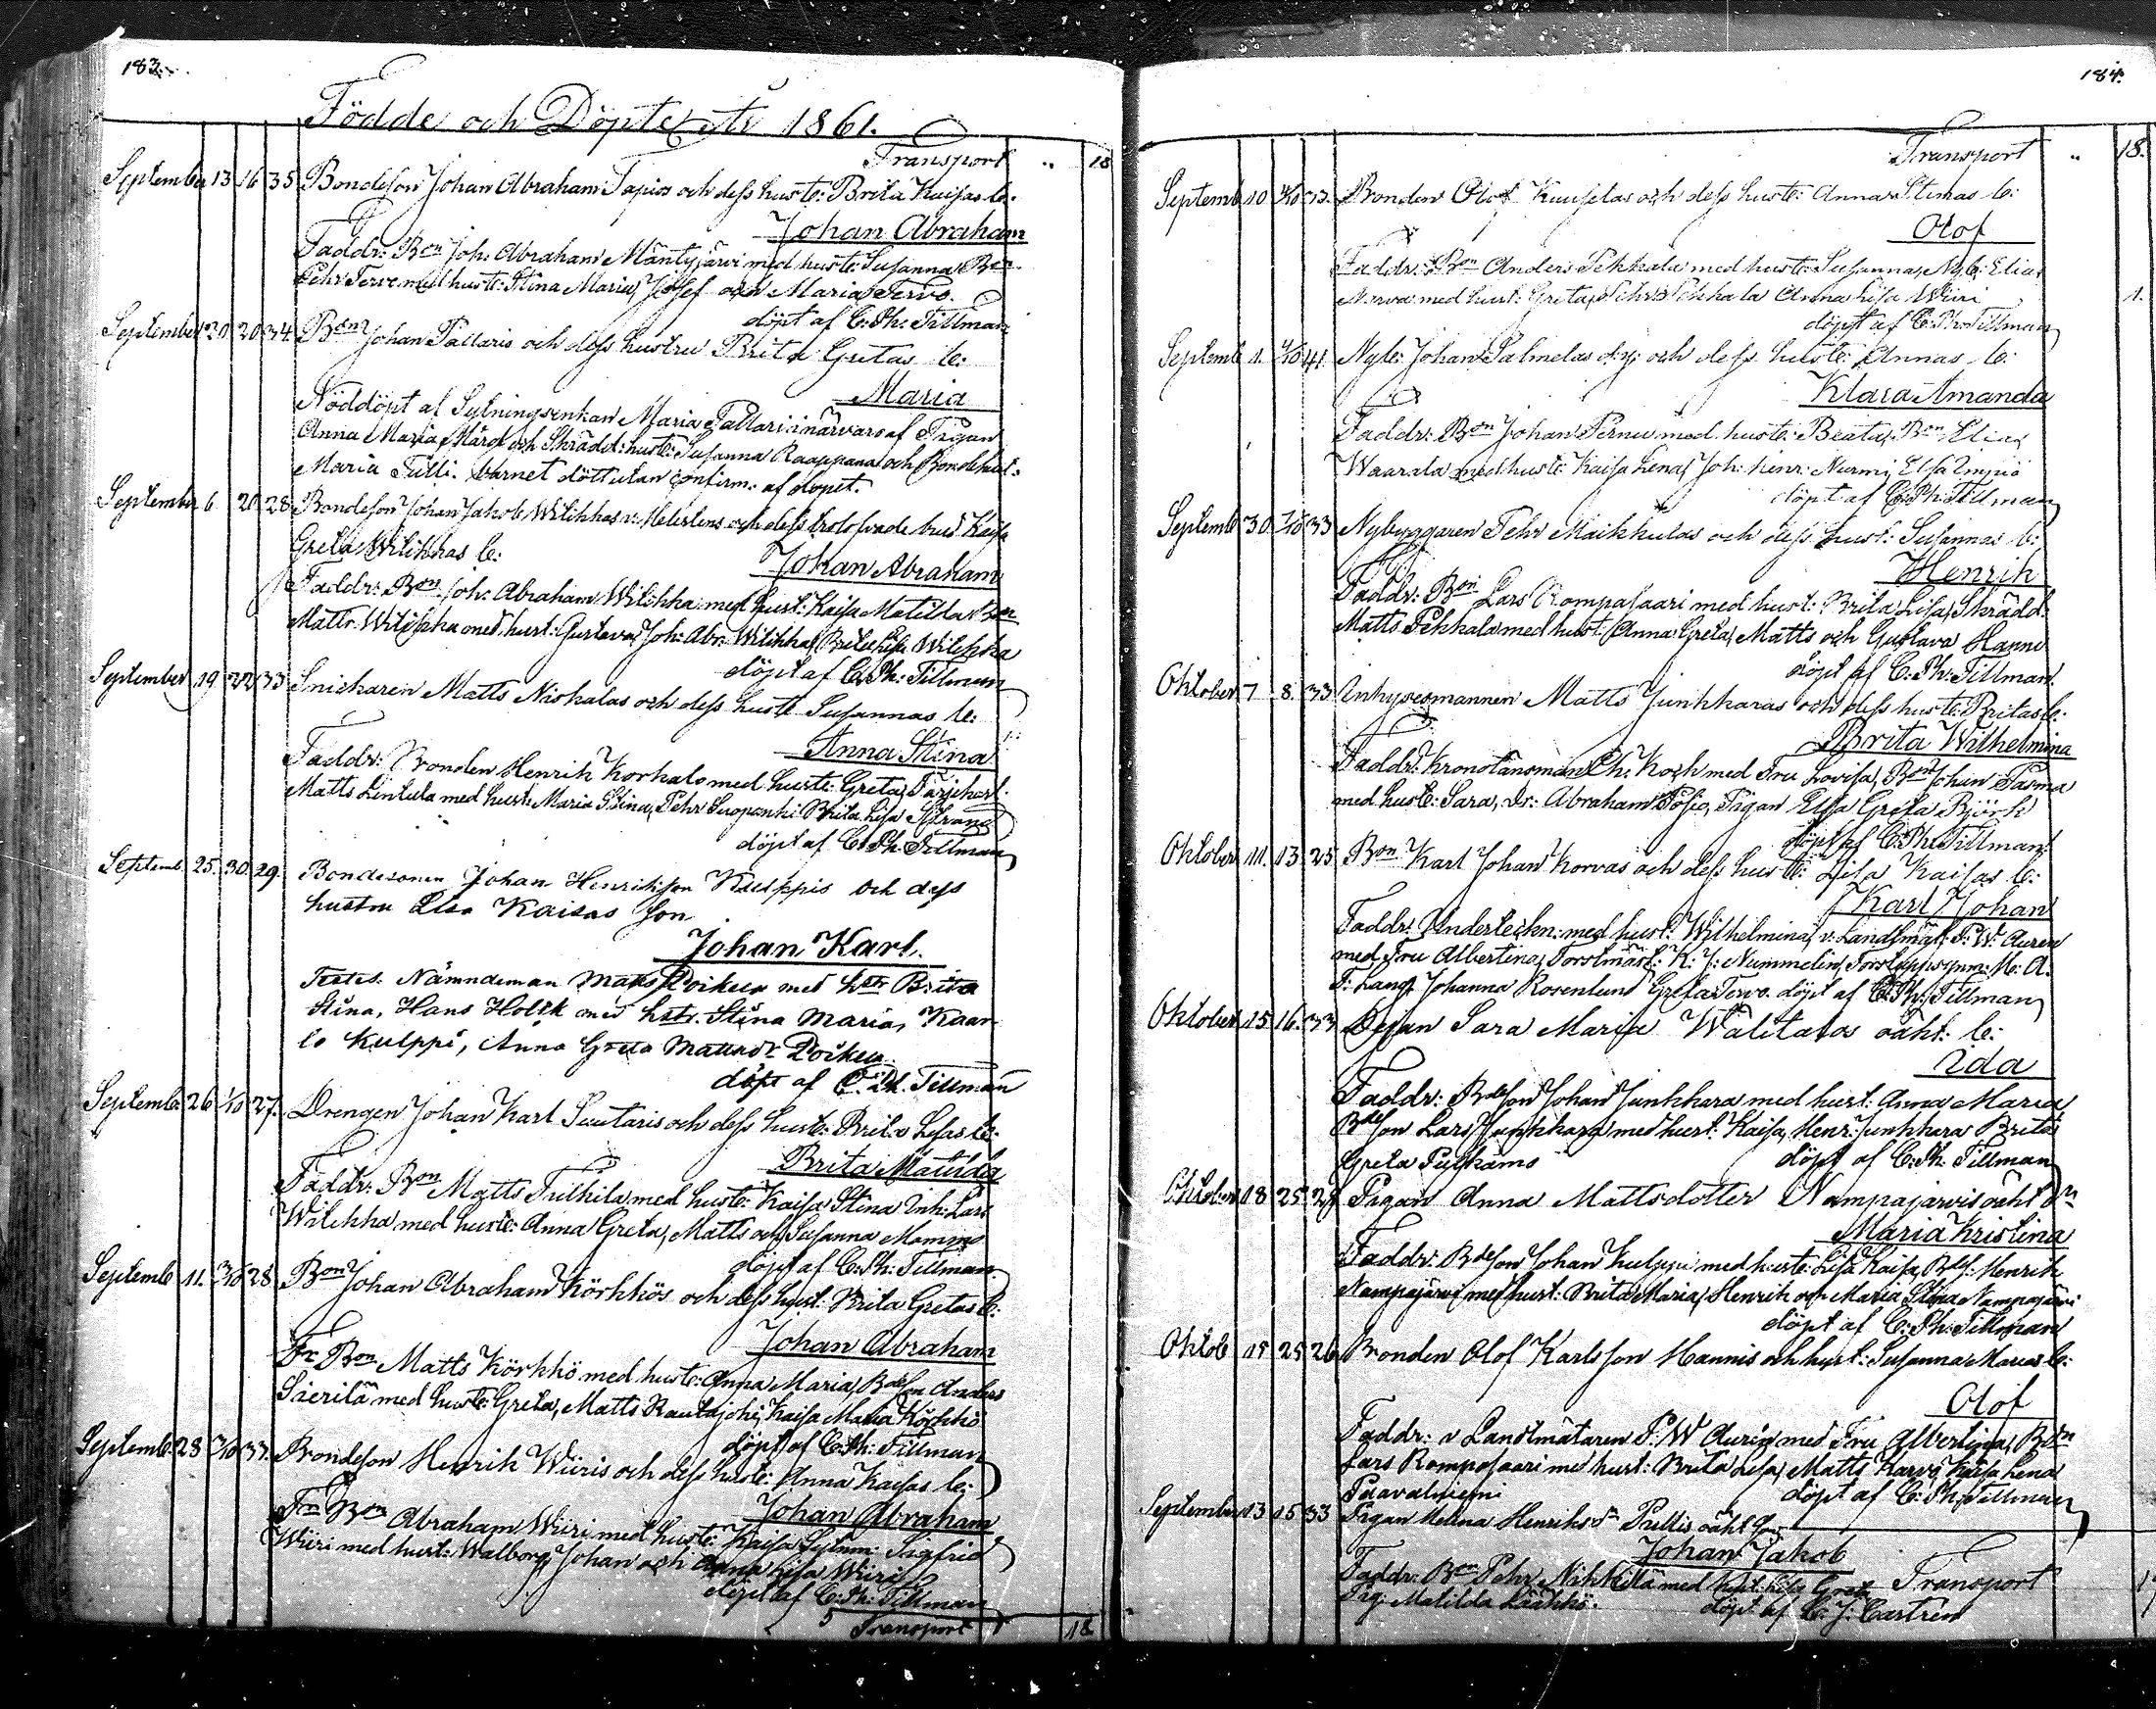 183.
Födde och Döpte År 1861.
Transport " 18
September 13 16 35 Bondeson Johan Abraham Tapios och dess hustr: Brita Kaisas b:
Johan Abraham
Faddr: Bon Joh: Abraham Mäntyjärvi med hustr: Susanna, Bon
Pehr Tervo med hustr: Stina Maria, Josef och Maria Tervo.
döpt af C: Ph: Tillman
September 20 20 34 Bon Johan Pallaris och dess hustru Brita Gretas b:
Maria
Nöddöpt af Sytningsenkan Maria Pallari i närvaro af Pigan
Anna Maria och Skrädd: hustr: Susanna Raappana och Bondehust:
Maria Tulli. barnet dött utan confirm: af dopet.
September 6 20 28 Bondeson Johan Jakob Wilikkas v: och dess trolofvade brud Kaisa
Greta Wilikkas b:
Johan Abraham
Faddr: Bon Joh: Abraham Wilikka med hust: Kaisa Matilda Bon
Matts Wilikka med hust: Gustava, Joh: Abr: Wilikka, Brita Lisa Wilikka
döpt af C: Ph: Tillman
September 19 22 33 Snickaren Matts Niskalas och dess hustr Susannas b:
Anna Stina
Faddr: Bonden Henrik Korkalo med hustr: Greta, Färjekarl
Matts Lintula med hustr: Maria Stina, Pehr Suopanki Brita Lisa Strand
döpt af C: Ph: Tillman
Septemb 25. 30 29. Bondesonen Johan Henriksson Kulppis och dess
hustru Elsa Kaisas son
Johan Karl.
Testes. Nämndeman Matts Poikela med hstr Brita
Stina, Hans Holck med hstr. Stina Maria, Kaar
lo Kulppi, Anna Greta Mattsdr Poikela.
döpt af C. Ph. Tillman
Septemb. 26 1/10 27. Drengen Johan Karl Suutaris och dess hustr: Brita Lisas b:
Brita Matilda
Faddr: Bon Matts Tulkila med hustr: Kaisa Stina Inh: Lars
Wilikka med hustr: Anna Greta, Matts och Susanna Mommo
döpt af C: Ph: Tillman.
Septemb 11. 3/10 28 Bon Johan Abraham Körkkös och dess hust: Brita Gretas b:
Johan Abraham
Fr Bon Matts Körkkö med hustr: Anna Maria, Bdeson Anders
Sierilä med hustr: Greta, Matts Rautajoki, Kaisa Maria Körkkö
döpt af C: Ph: Tillman
Septemb. 28 3/10 33. Bondeson Henrik Wiiris och dess hustr: Anna Kaisas b:
Johan Abraham
Fr Bon Abraham Wiiri med hustr: Kaisa, Sytnm: Sigfrid
Wiiri med hust: Walborg, Johan och Anna Lisa Wiiri
döpt af C: Ph: Tillman
Transport 18
184.
Transport " 18.
Septemb 10 4/10 33. Bonden Olof Kuuselas och dess hustr: Anna Stinas b:
Olof
Faddr: Bon Anders Pekkala med hustr: Susanna, Nyb: Elias
Narva med hust: Greta, Pehr Pekkala Anna Lisa Wiiri 1.
döpt af C: Ph: Tillman
Septemb 1. 4/10 41. Nyb: Johan Salmelas d: y: och dess hustr: Annas b:
Klara Amanda
Faddr: Bon Johan Pernu med hustr: Beata, Bon Elias
Waarala med hustr: Kaisa Lena, Joh: Henr: Nurmi, Elsa Impiö
döpt af C: Ph: Tillman
Septemb 30. 7/10 33 Nybyggaren Pehr Maikkulas och dess hust: Susannas b:
Henrik
Faddr: Bon Lars Rompasaari med hust: Brita Lisa, Skrädd:
Matts Pekkala med hust: Anna Greta, Matts och Gustava Hannu
döpt af C: Ph: Tillman.
Oktober 7 8. 33 Inhysesmannen Matts Junkkaras och dess hustr: Britas b:
Brita Wilhelmina
Faddr: Kronolänsman Ph: Koch med Fru Lovisa, Bon Johan Pasma
med hustr: Sara, Dr: Abraham Posio, Pigan Elsa Greta Björk
döpt af C: Ph: Tillman
Oktober 11. 13 25 Bon Karl Johan Korvas och dess hustr: Lisa Kaisas b:
Karl Johan
Faddr: Underteckn: med hust: Wilhelmina, v: Landtmät: P: W: Auren
med Fru Albertina, Forstmäst: K: J: Nummelin, Forstuppsynm: M: A.
F: Lang, Johanna Rosenlund Greta Tervo. döpt af C: Ph: Tillman
Oktober 15 16. 33 Pigan Sara Maria Walitalos oäkt: b:
Ida
Faddr: Bdeson Johan Junkkara med hust: Anna Maria
Bdeson Lars Junkkara med hust: Kaisa, Henr: Junkkara Brita
Greta Pulkamo döpt af C: Ph: Tillman
Oktober 18 25 28 Pigan Anna Mattsdotter Nampajärvis oäkt dr
Maria Kristina
Faddr: Bdeson Johan Kulppi med hustr: Lisa Kaisa, Bdes: Henrik
Nampajärvi med hust: Brita Maria, Henrik och Maria Stina Nampajärvi
döpt af C: Ph: Tillman
Oktob 15 25 26 Bonden Olof Karlsson Hannis och hust: Susanna Marias b:
Olof
Faddr: v Landtmätaren P: W Auren med Fru Albertina, Bdn
Lars Rompasaari med hust: Brita Lisa, Matts Karvo, Kaisa Lena
Paavalniemi döpt af C: Ph: Tillman
September 13 15 33 Pigan Helena Henriksdr Pullis oäkt son
Johan Jakob
Faddr: Bon Pehr Nikkilä med hust: Lisa Greta Transport
Pig: Matilda Läähkö. döpt af C: J: Castrén